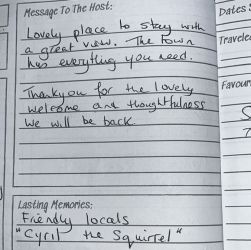 Message To The Host:
Lovely place to stay with
a great view. The town
has everything you need.
Thankyou for the lovely
welcome and thoughtfulness
We will be back.
Lasting Memories:
Friendly locals
"Cyril the Squirrel"
Dates
Travele
Favour